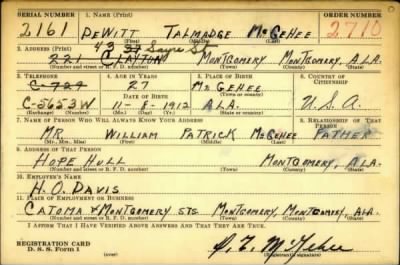 SERIAL NUMBER 1. NAME (Print) ORDER NUMBER
2161 DEWITT TALMADGE McGEHEE 2710
(First) (Middle) (Last)
2. ADDRESS (Print) 43 Sayre St.
221 CLAYTON MONTGOMERY MONTGOMERY ALA.
(Number and street or R. F. D. number) (Town) (County) (State)
3. TELEPHONE 4. AGE IN YEARS 5. PLACE OF BIRTH 6. COUNTRY OF CITIZENSHIP
C-727 27 McGEHEE
DATE OF BIRTH (Town or county)
C-5653W 11-8-1912 ALA. U.S.A.
(Exchange) (Number) (Mo.) (Day) (Yr.) (State or country)
7. NAME OF PERSON WHO WILL ALWAYS KNOW YOUR ADDRESS 8. RELATIONSHIP OF THAT PERSON
MR WILLIAM PATRICK McGEHEE FATHER
(Mr., Mrs., Miss) (First) (Middle) (Last)
9. ADDRESS OF THAT PERSON
HOPE HULL MONTGOMERY, ALA.
(Number and street or R. F. D. number) (Town) (County) (State)
10. EMPLOYER'S NAME
H. O. DAVIS
11. PLACE OF EMPLOYMENT OR BUSINESS
CATOMA & MONTGOMERY STS. MONTGOMERY, MONTGOMERY, ALA.
(Number and street or R. F. D. number) (Town) (County) (State)
I AFFIRM THAT I HAVE VERIFIED ABOVE ANSWERS AND THAT THEY ARE TRUE.
REGISTRATION CARD
D. S. S. Form 1 (Registrant's signature)